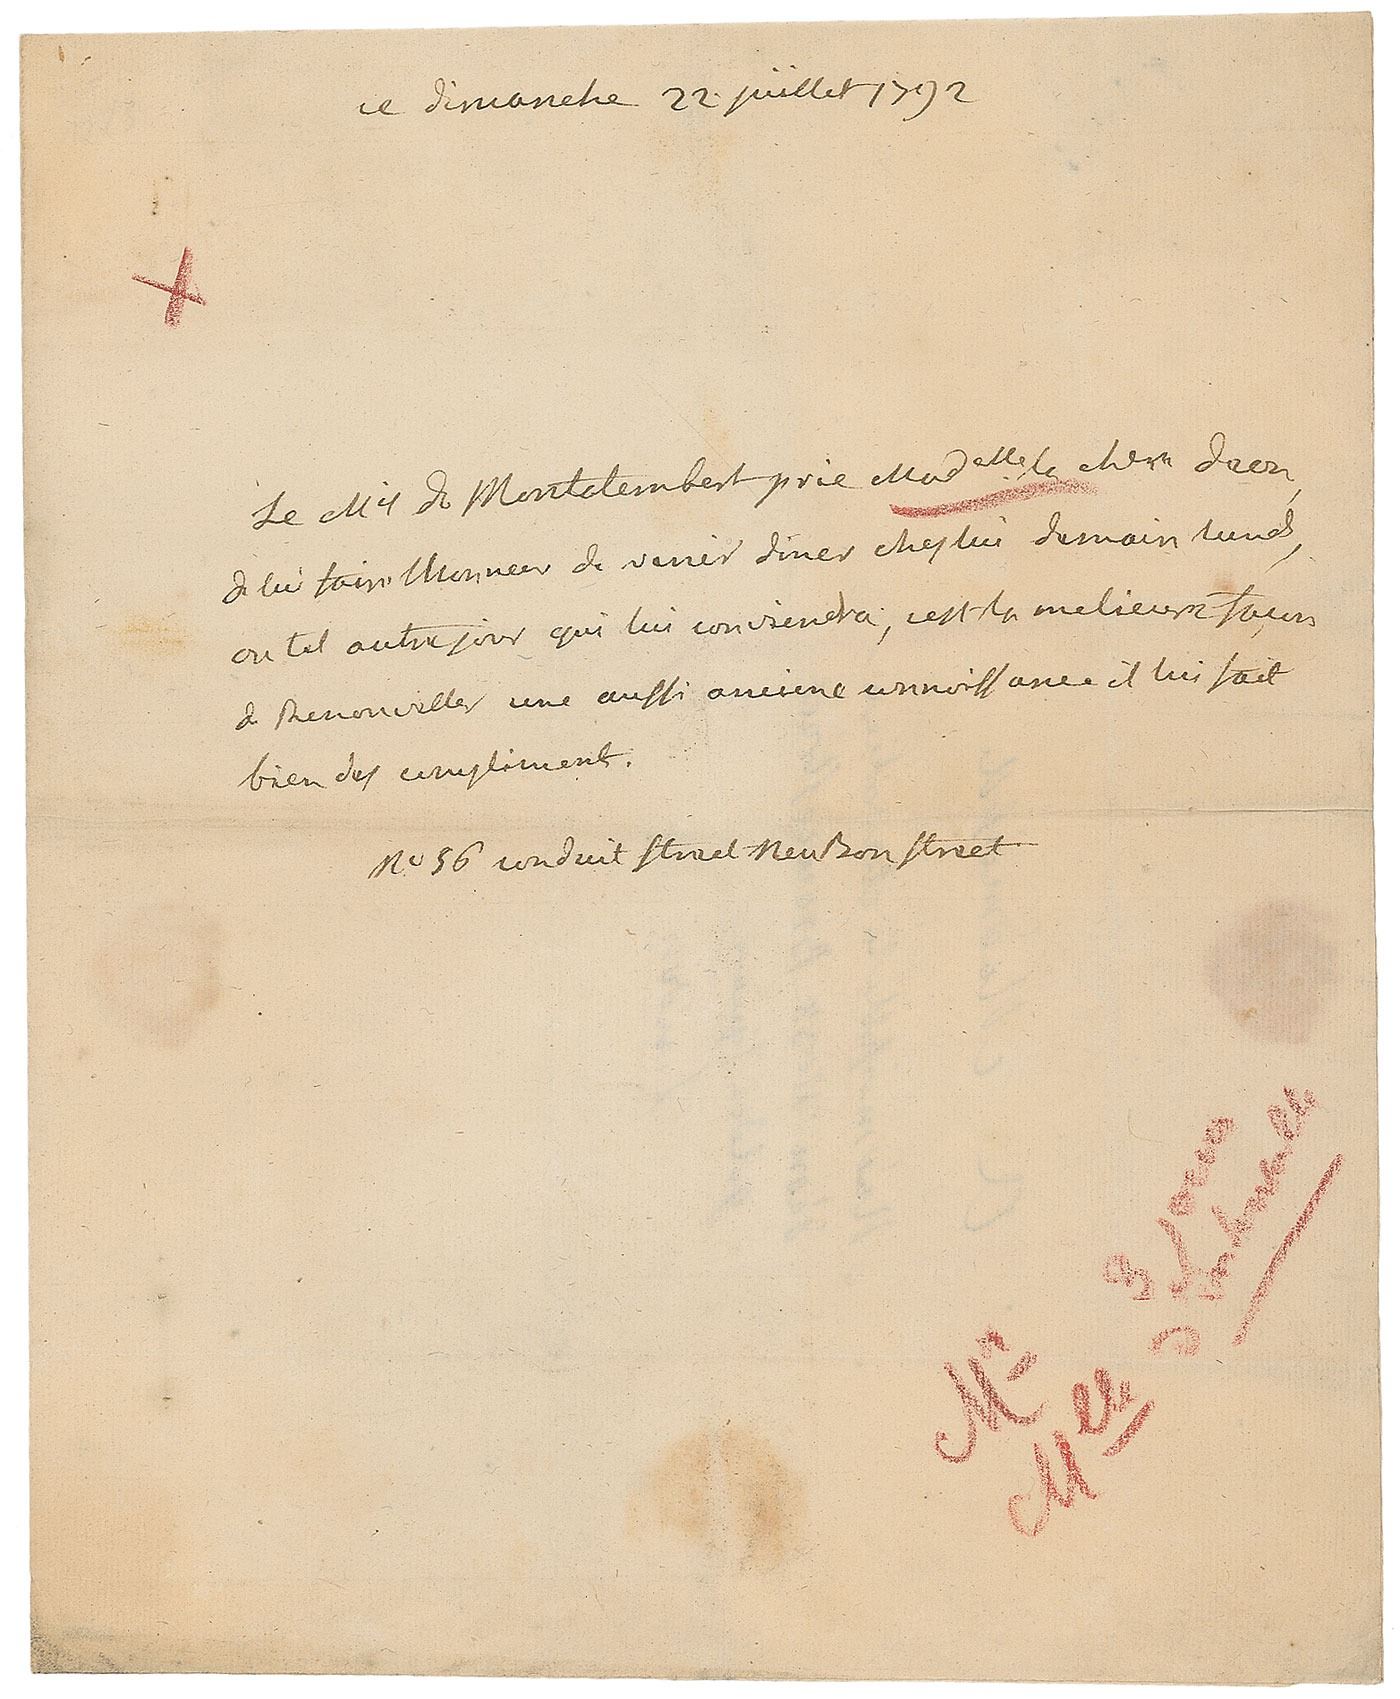 ce dimanche 22 juillet 1792
Le Mis de Montalembert prie Madelle la chere deon,
de lui faire lhonneur de venir diner chez lui demain lundi,
ou tel autre jour qui lui conviendra, cest la melieure façon
de Renouveller une aussi anciene connoissance il lui fait
bien des compliment.
No 56 conduit street New Bon street
Mr
Mlle